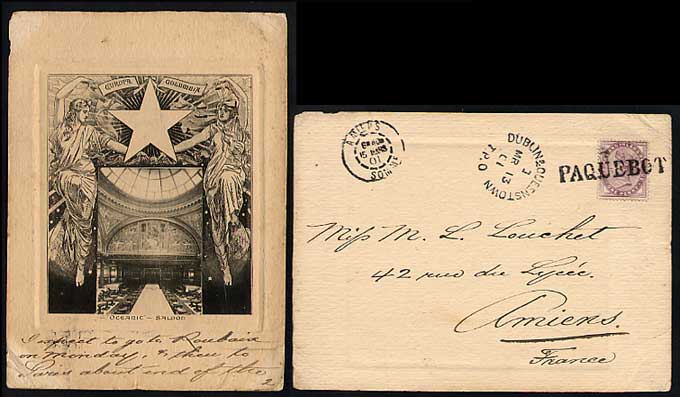 EUROPA COLUMBIA
"OCEANIC" - SALOON
I expect to go to Roubaix
on Monday, & then to
Paris about end of the
2
AMIENS
01
SOMME
DUBLIN & QUEENSTOWN
MR 13
01
T.P.O
PAQUEBOT
Miss M. L. Louchet
42 rue du Lycée.
Amiens.
France